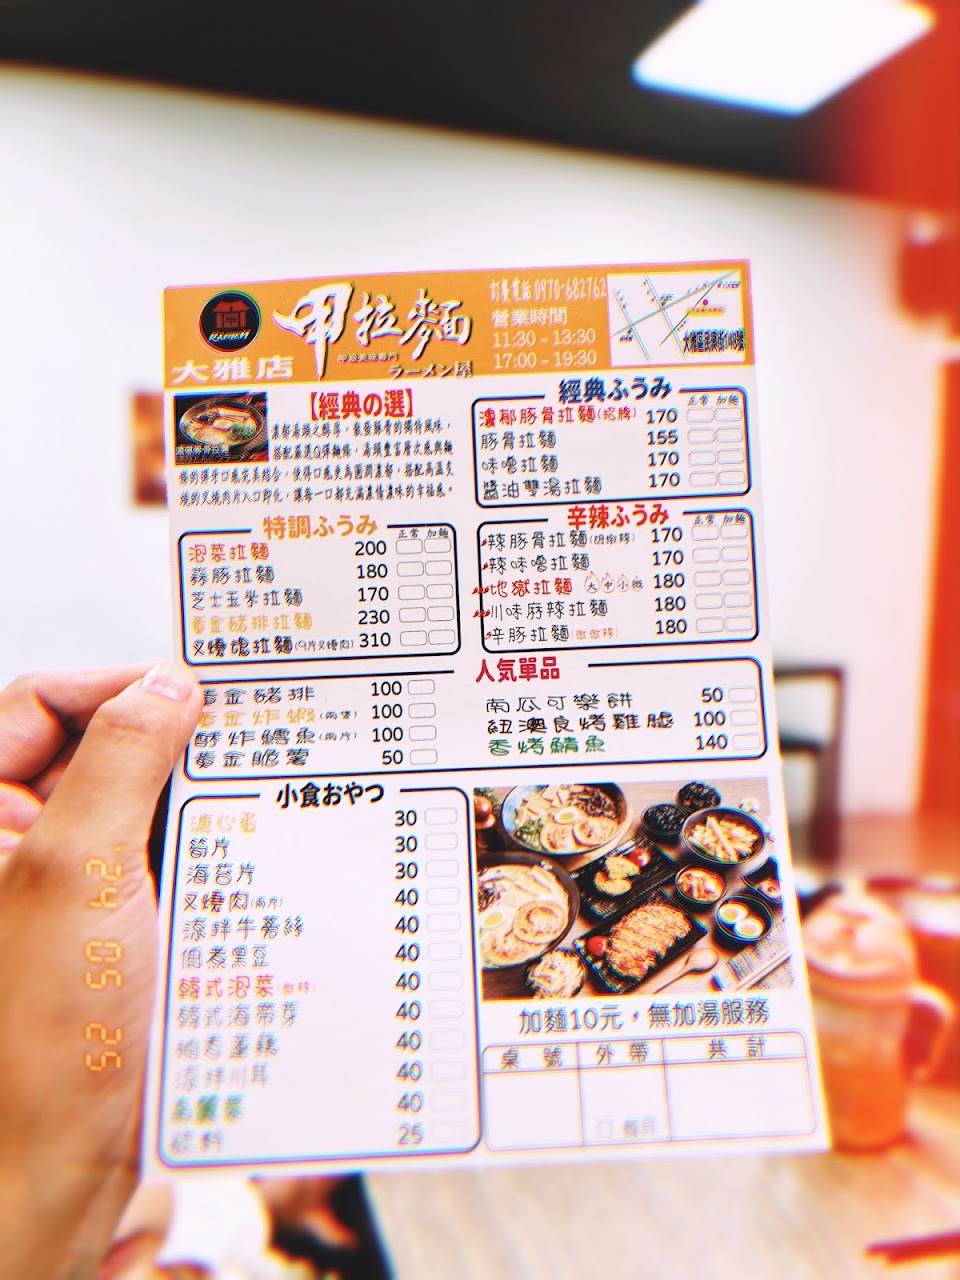 訂餐電話 0970-682762
RAMEN
甲拉麵
營業時間
11:30 - 13:30
17:00 - 19:30
甲級美味專門
ラーメン屋
大雅店
【經典の選】
濃郁湯頭之醇厚，散發豚骨的獨特風味，
搭配嚴選Q彈麵條，湯頭豐富層次感與麵
條的彈牙口感完美結合，使得口感更為圓潤濃郁，搭配高溫炙
燒的叉燒肉片入口即化，讓每一口都充滿濃情濃味的幸福感。
經典ふうみ
正常 加麵
濃郁豚骨拉麵(招牌) 170
豚骨拉麵 155
味噌拉麵 170
醬油雙湯拉麵 170
特調ふうみ
正常 加麵
泡菜拉麵 200
蒜豚拉麵 180
芝士玉米拉麵 170
黃金豬排拉麵 230
叉燒魂拉麵(9片叉燒肉) 310
辛辣ふうみ
正常 加麵
辣豚骨拉麵(胡椒辣) 170
辣味噌拉麵 170
地獄拉麵 大 中 小 微 180
川味麻辣拉麵 180
辛豚拉麵(微微辣) 180
人気單品
黃金豬排 100
黃金炸蝦(兩隻) 100
酥炸鱈魚(兩片) 100
黃金脆薯 50
南瓜可樂餅 50
紐澳良烤雞腿 100
香烤鯖魚 140
小食おやつ
溏心蛋 30
筍片 30
海苔片 30
叉燒肉(兩片) 40
涼拌牛蒡絲 40
佃煮黑豆 40
韓式泡菜(微辣) 40
韓式海帶芽 40
40
涼拌川耳 40
高麗菜 40
飲料 25
加麵10元，無加湯服務
桌號 外帶 共計
餐具
'24 05 25